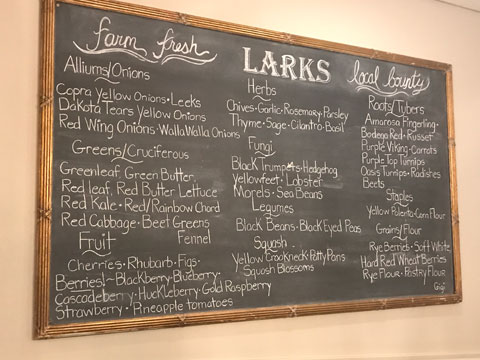 farm fresh
Alliums/Onions
Copra Yellow Onions · Leeks
Dakota Tears Yellow Onions
Red Wing Onions · Walla Walla Onions
Greens/Cruciferous
Greenleaf Green Butter
Red leaf, Red Butter Lettuce
Red Kale · Red/Rainbow Chard
Red Cabbage · Beet Greens
Fruit Fennel
Cherries · Rhubarb · Figs ·
Berries! - Blackberry · Blueberry ·
Cascadeberry · Huckleberry · Gold Raspberry
Strawberry · Pineapple tomatoes
LARKS
Herbs
Chives · Garlic · Rosemary · Parsley
Thyme · Sage · Cilantro · Basil
Fungi
Black Trumpets · Hedgehog
Yellowfeet · Lobster
Morels · Sea Beans
Legumes
Black Beans · Black Eyed Peas
Squash
Yellow Crookneck · Patty Pans
Squash Blossoms
local bounty
Roots/Tubers
Amarosa Fingerling ·
Bodega Red · Russet
Purple Viking · Carrots
Purple Top Turnips
Oasis Turnips · Radishes
Beets
Staples
Yellow Polenta · Corn Flour
Grains/Flour
Rye Berries · Soft White
Hard Red Wheat Berries
Rye Flour · Pastry Flour